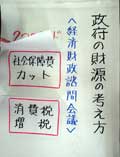 政府の財源の考え方
<経済財政諮問会議>
社会保障費
カット
消費税
増税